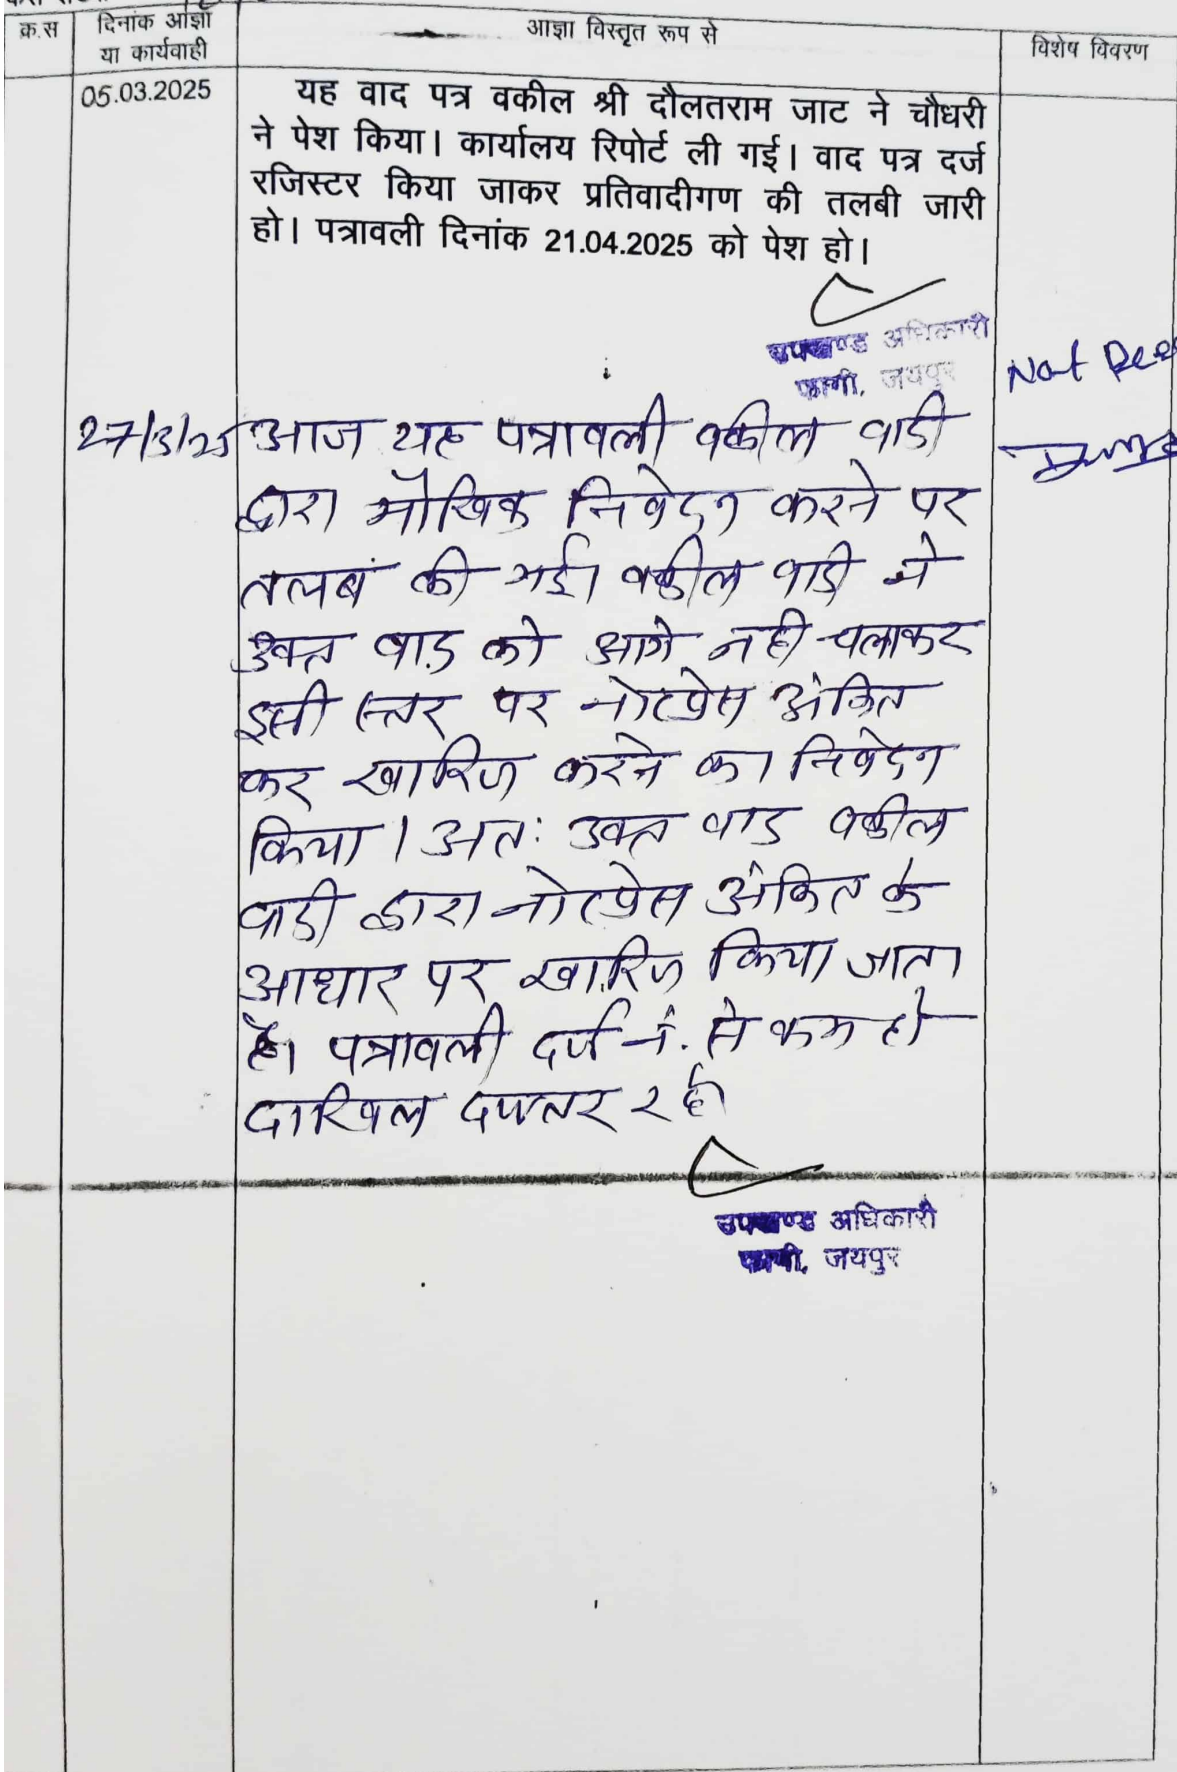 क्र.स
दिनांक आज्ञा
या कार्यवाही
आज्ञा विस्तृत रूप से
विशेष विवरण
05.03.2025
यह वाद पत्र वकील श्री दौलतराम जाट ने चौधरी
ने पेश किया। कार्यालय रिपोर्ट ली गई। वाद पत्र दर्ज
रजिस्टर किया जाकर प्रतिवादीगण की तलबी जारी
हो। पत्रावली दिनांक 21.04.2025 को पेश हो।
उपखण्ड अधिकारी
फागी, जयपुर
Not
27/3/25
आज यह पत्रावली वकील वादी
द्वारा मौखिक निवेदन करने पर
तलब की गई। वकील वादी ने
उक्त वाद को आगे नही चलाकर
इसी स्तर पर नोटप्रेस अंकित
कर खारिज करने का निवेदन
किया। अतः उक्त वाद वकील
वादी द्वारा नोटप्रेस अंकित के
आधार पर खारिज किया जाता
है। पत्रावली दर्ज नं. से कम हो
दाखिल दफ्तर रहे
उपखण्ड अधिकारी
फागी, जयपुर